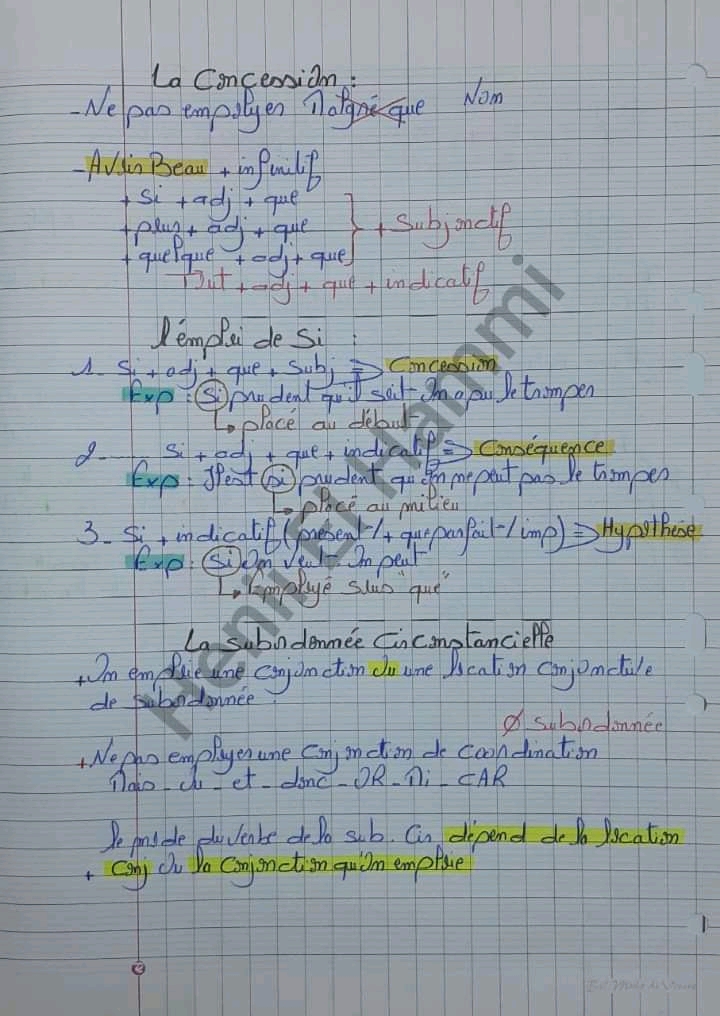 La Concession :
- Ne pas employer Malgré que Nom
- Avoir Beau + infinitif
+ si + adj + que
+ plus + adj + que
+ quelque + adj + que
} + Subjonctif
Tout + adj + que + indicatif
l'emploi de Si :
1 - Si + adj + que + subj => Concession
Exp : Si prudent qu'il soit on a pu le tromper
↳ placé au début
2 - Si + adj + que + indicatif => Conséquence
Exp : Il est si prudent qu'on ne peut pas le tromper
↳ placé au milieu
3 - Si + indicatif (présent / + que parfait / imp) => Hypothèse
Exp : Si on veut on peut
↳ Employé sans "que"
La subordonnée Circonstancielle
+ On emploie une conjonction ou une locution conjonctive
de subordonnée.
Ø subordonnée
+ Ne pas employer une conjonction de coordination
Mais - ou - et - donc - OR - Ni - CAR
le mode du verbe de la sub. Cir dépend de la location
+ conj ou la conjonction qu'on emploie
Henil El Hammi